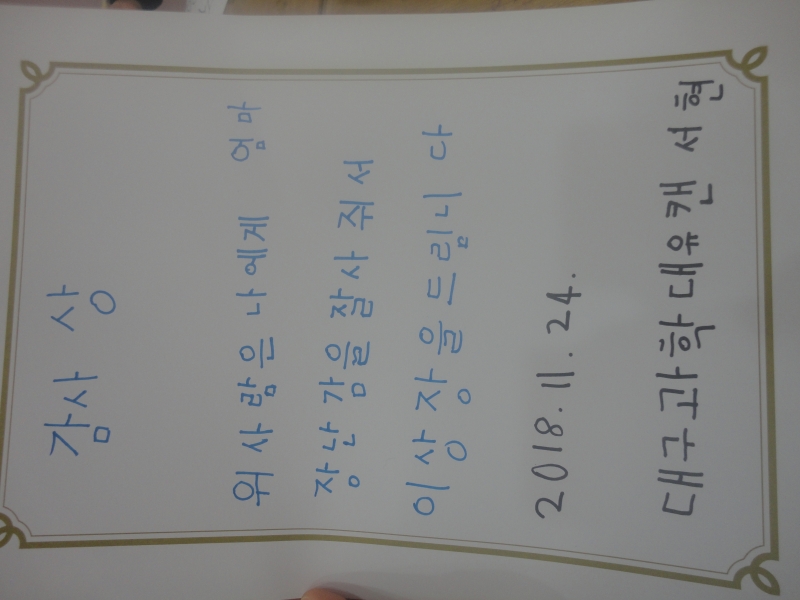 감사 상
엄마
위 사람은 나에게
장난 감을 잘사 줘서
이 상장을 드립니다
2018. 11. 24.
대구과학대유캔 서현